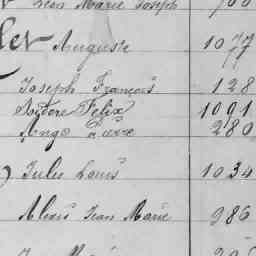 Jean Marie Joseph 700
let Auguste 1077
Joseph François 128
Isidore Felix 1001
Ange Pierre 280
Jules Louis 1034
Alexis Jean Marie 986